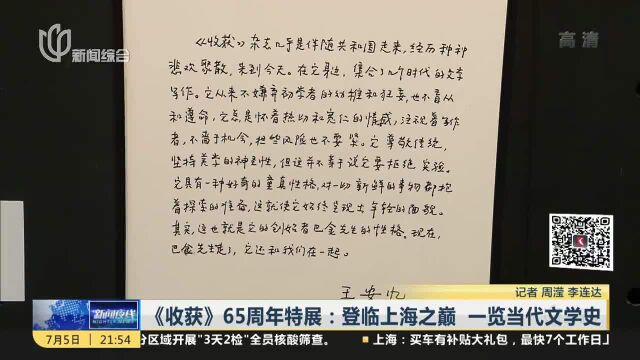 新闻综合
高清
《收获》杂志几乎是伴随共和国走来，经历种种
悲欢聚散，来到今天。在它身边，集合了几个时代的文学
写作。它从来不嫌弃初学者的幼稚和狂妄，也不看从
和遵命，它总是怀着热切和宽仁的情感，注视着写作
者，不啬于机会，担些风险也不要紧。它尊敬传统，
坚持美学的神圣性，但这并不等于说它要拒绝实验。
它具有一种好奇的童真性格，对一切新鲜的事物都抱
着探索的准备，这就使它始终呈现出年轻的面貌。
其实，这也就是它的创始者巴金先生的性格。现在，
巴金先生走了，它还和我们在一起。
王安忆
记者 周滢 李连达
新闻夜线
《收获》65周年特展：登临上海之巅 一览当代文学史
7月5日 21:54
分区域开展"3天2检"全员核酸筛查。
上海：买车有补贴大礼包，最快7个工作日